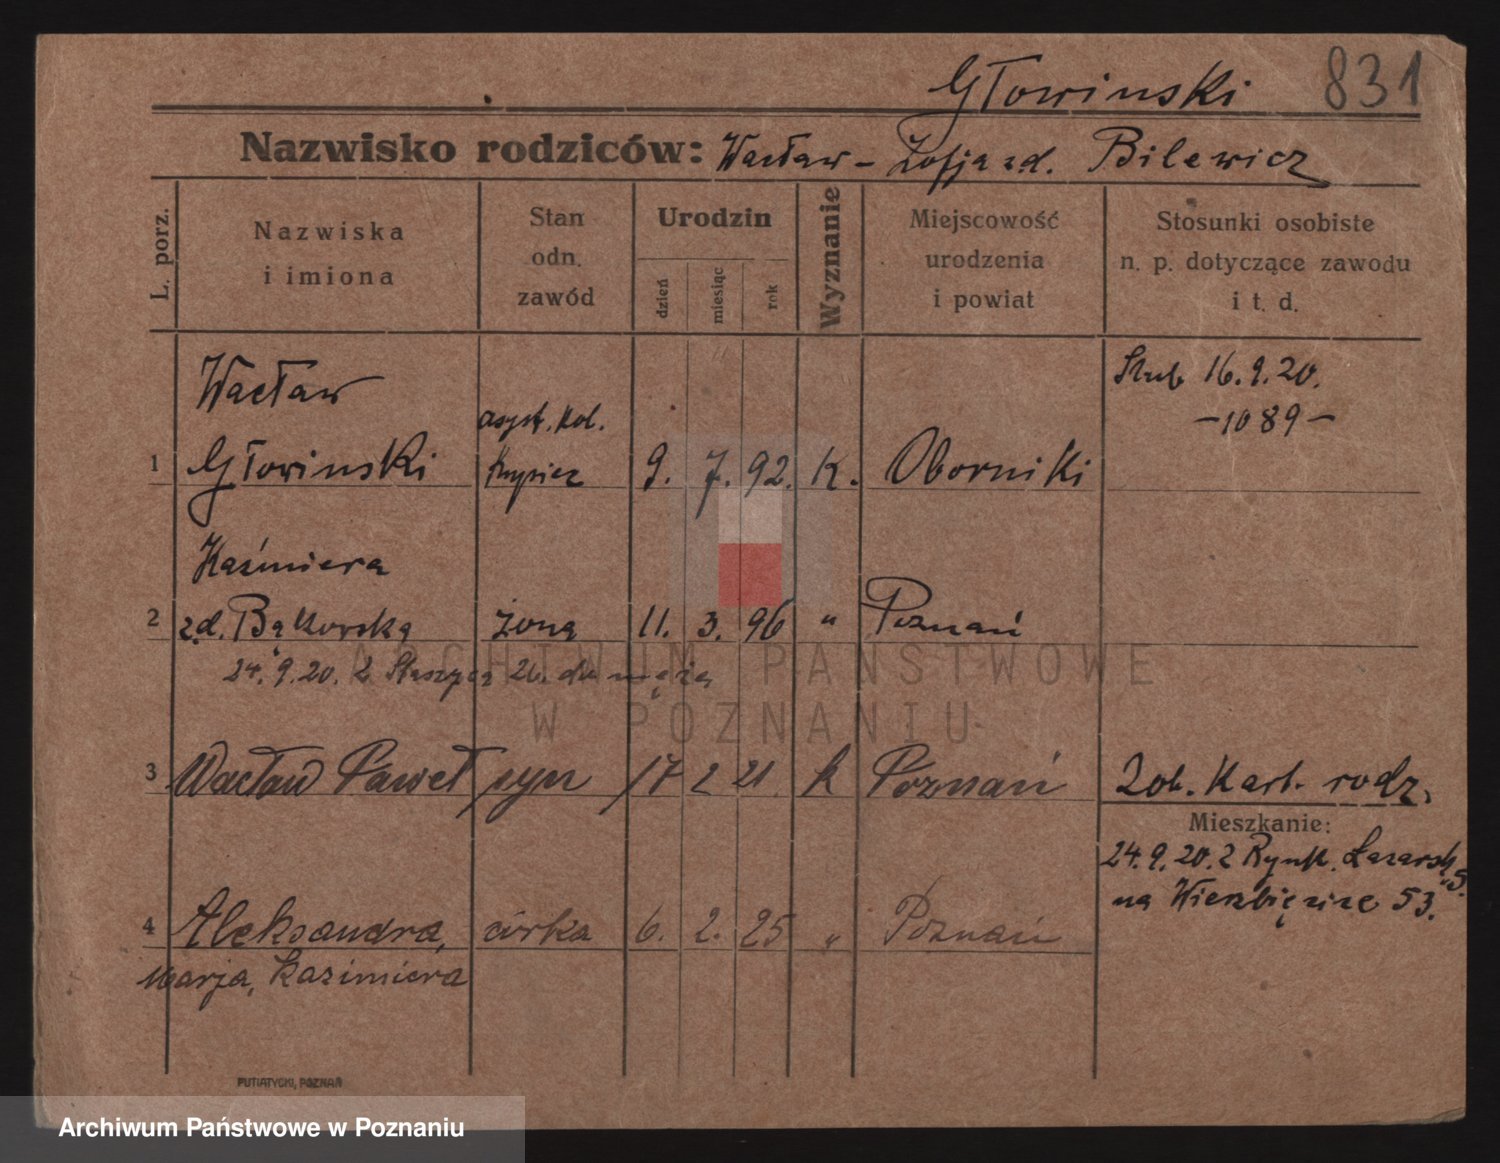 Głowinski 831
Nazwisko rodziców: Wacław – Zofja zd. Bilewicz
L. porz.
Nazwiska
i imiona
Stan
odn.
zawód
Urodzin
dzień
miesiąc
rok
Wyznanie
Miejscowość
urodzenia
i powiat
Stosunki osobiste
n. p. dotyczące zawodu
i t. d.
Wacław
Ślub 16.9.20.
asyst. kol.
–1089–
1 Głowinski 9. 7. 92. K. Oborniki
Kaźmiera
2 zd. Bąkorska żona 11. 3. 96 " Poznań
24.9.20. z Staszyca 26. do męża
ARCHIWUM PAŃSTWOWE
W POZNANIU
3 Wacław Paweł syn 17 2 21 k Poznań
Zob. Kart. rodz.
Mieszkanie:
24.9.20. z Rynk. Łazarsk. 5.
na Wierzbięcice 53.
4 Aleksandra, córka 6. 2. 25 " Poznań
Marja, Kazimiera
PUTIATYCKI, POZNAŃ
Archiwum Państwowe w Poznaniu